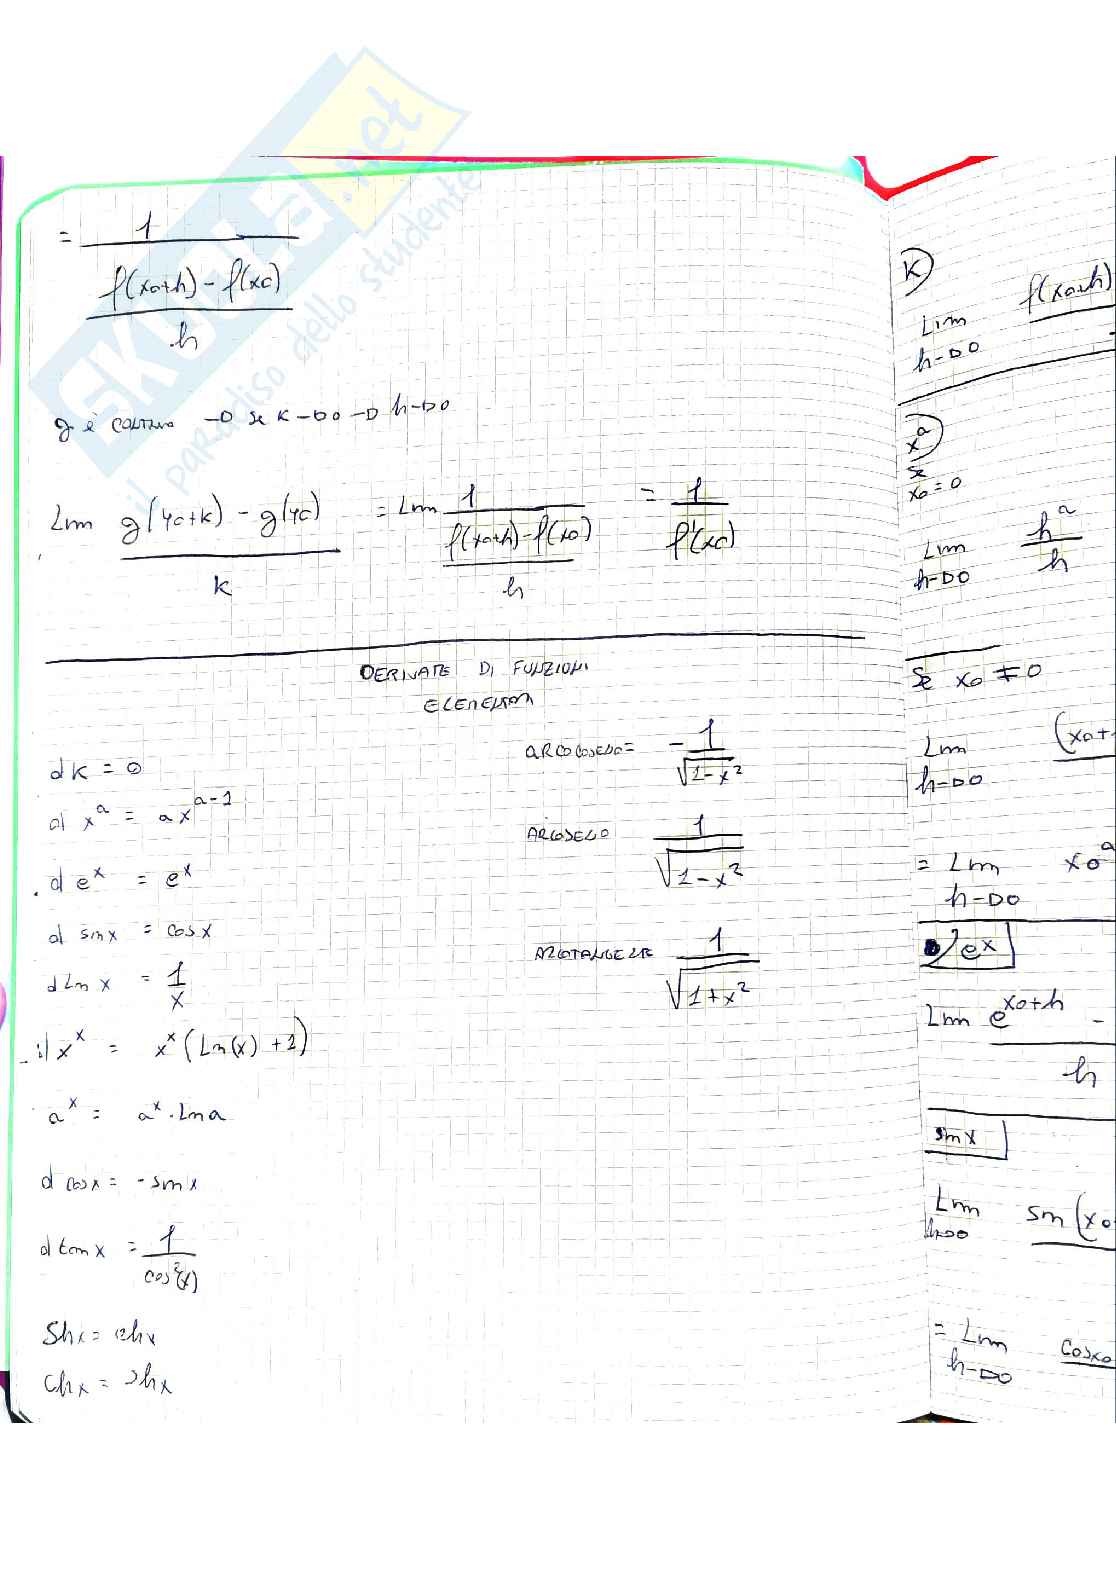 SKUOLA.net
il paradiso dello studente
= 1
f(x0+h) - f(x0)
h
g è continua –▷ se k –▷ 0 –▷ h –▷ 0
Lim g(y0+k) - g(y0) = Lim 1 = 1
k f(x0+h) - f(x0) f'(x0)
h
DERIVATE DI FUNZIONI
ELEMENTARI
d k = 0
d x^a = a x^(a-1)
d e^x = e^x
d sin x = cos x
d Ln x = 1/x
d x^x = x^x (Ln(x) + 1)
a^x = a^x · Ln a
d cos x = - sin x
d tan x = 1/cos²(x)
Sh x = ch x
Ch x = sh x
ARCOCOSENO = - 1/√(1-x²)
ARCOSENO 1/√(1-x²)
ARCOTANGENTE 1/√(1+x²)
k)
Lim f(x0+h)
h –▷ 0
x^a)
se
x0 = 0
Lim h^a
h –▷ 0 h
Se x0 ≠ 0
Lim (x0+
h –▷ 0
= Lim x0^a
h –▷ 0
e^x
Lim e^(x0+h) -
h
sin x
Lim sin (x0
h –▷ 0
= Lim cos x0
h –▷ 0